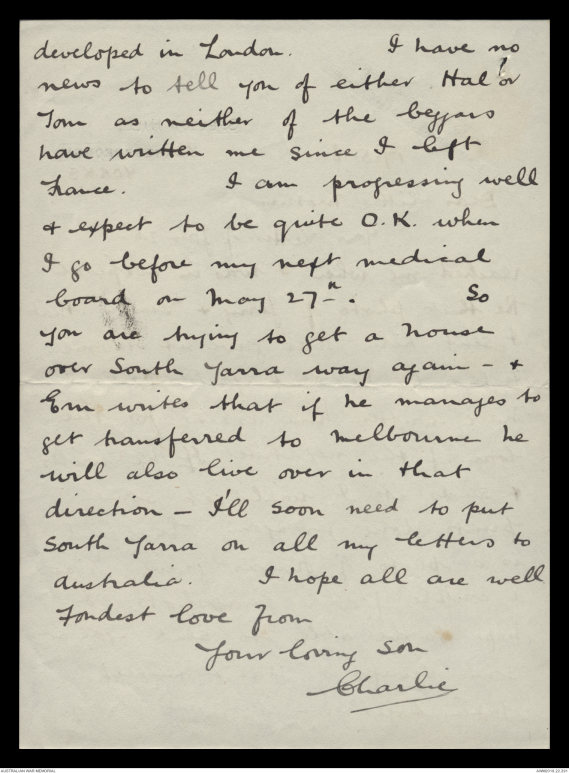 developed in London. I have no
news to tell you of either Hal or
Tom as neither of the beggars
have written me since I left
France. I am progressing well
& expect to be quite O.K. when
I go before my next medical
board on May 27th. So
you are trying to get a house
over South Yarra way again - &
Ern writes that if he manages to
get transferred to Melbourne he
will also live over in that
direction - I'll soon need to put
South Yarra on all my letters to
Australia. I hope all are well
Fondest love from
Your loving son
Charlie
AUSTRALIAN WAR MEMORIAL